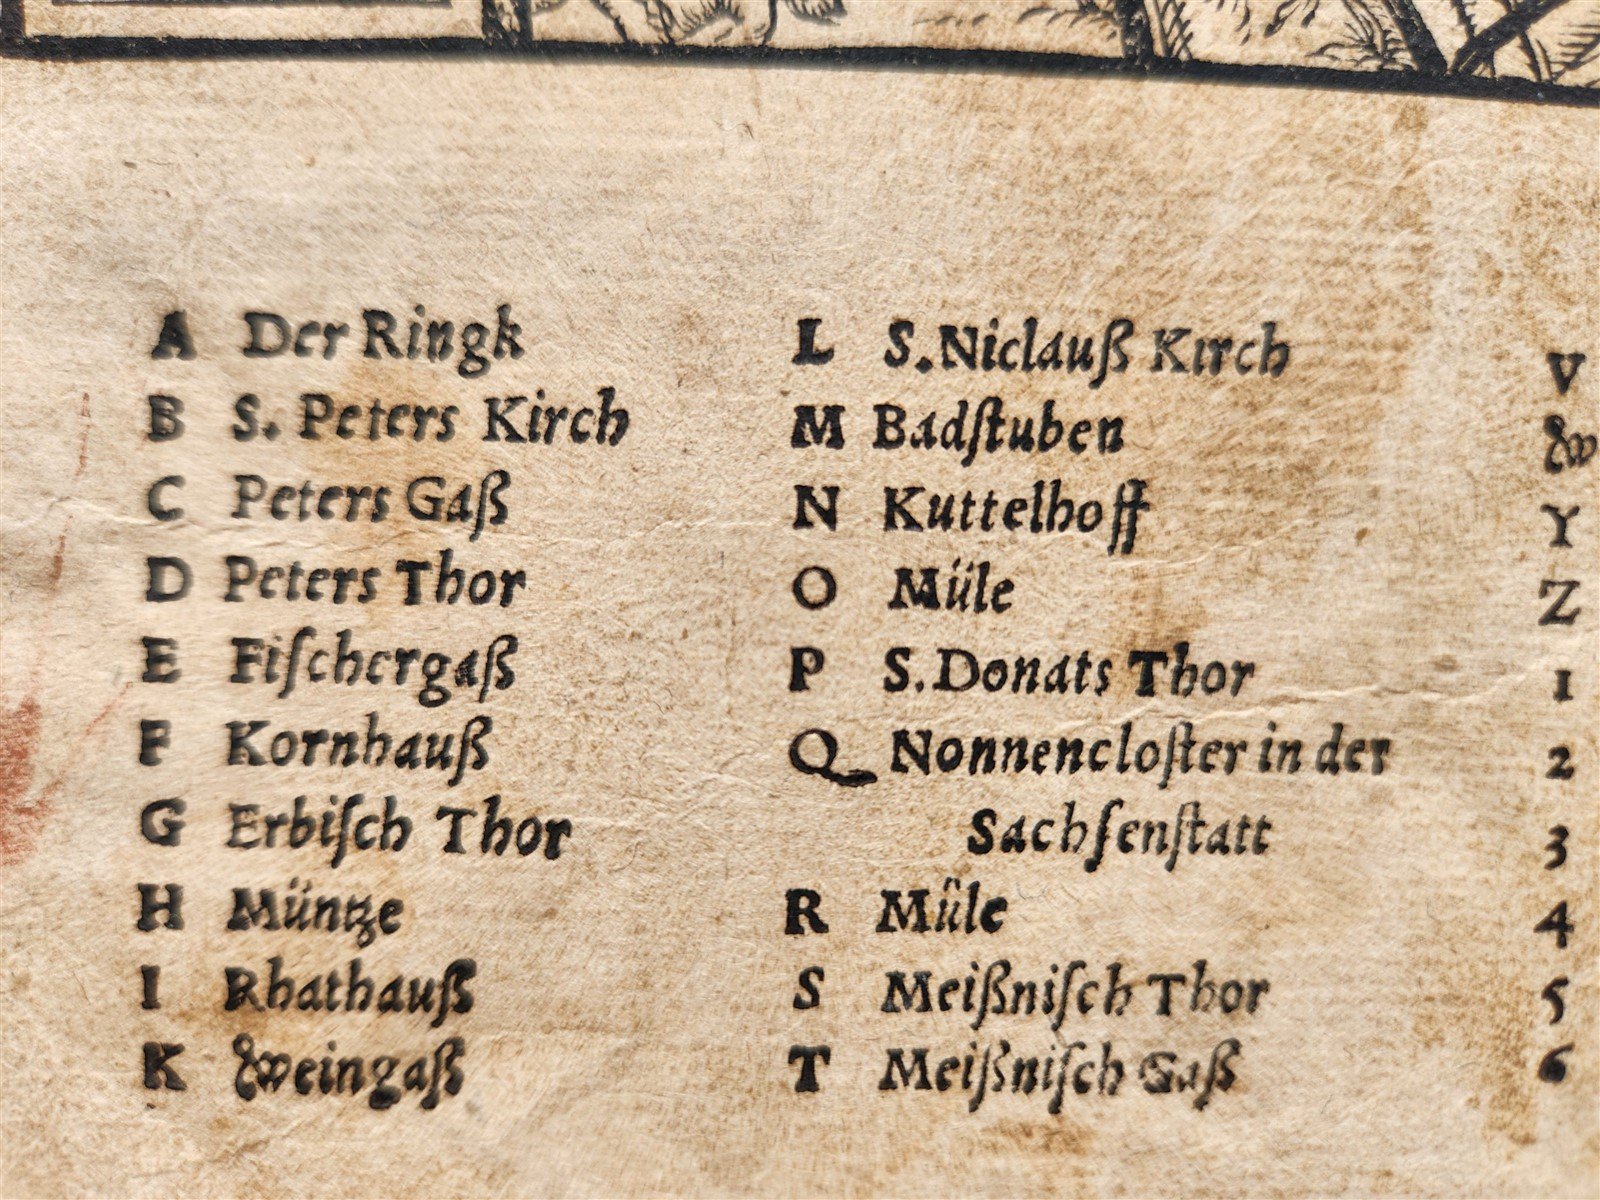 A Der Ringk
B S. Peters Kirch
C Peters Gaß
D Peters Thor
E Fiſchergaß
F Kornhauß
G Erbiſch Thor
H Müntze
I Rhathauß
K Weingaß
L S. Niclauß Kirch
M Badſtuben
N Kuttelhoff
O Müle
P S. Donats Thor
Q Nonnencloſter in der
Sachſenſtatt
R Müle
S Meißniſch Thor
T Meißniſch Gaß
V
W
Y
Z
1
2
3
4
5
6